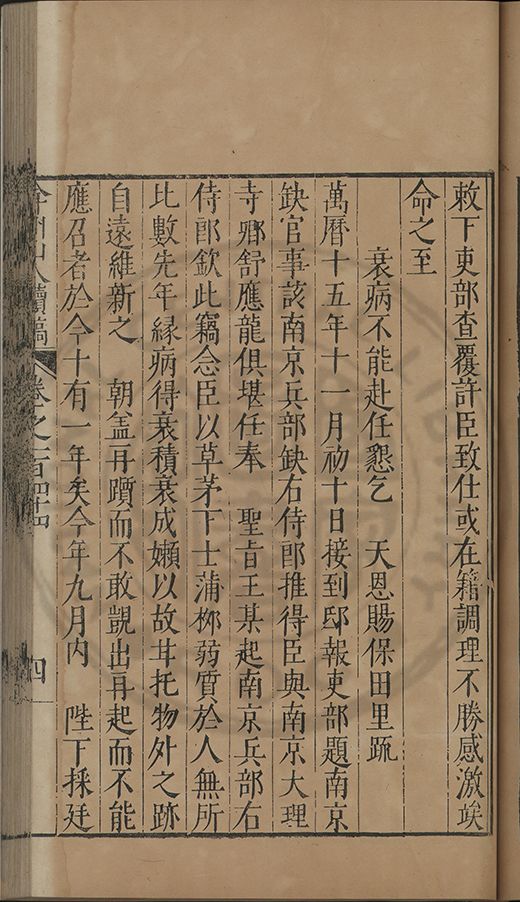 敕下吏部查覆許臣致仕或在籍調理不勝感激竢
命之至
衰病不能赴任懇乞　天恩賜保田里疏
萬曆十五年十一月初十日接到邸報吏部題南京
缺官事該南京兵部缺右侍郎推得臣與南京大理
寺卿舒應龍俱堪任奉　聖旨王某起南京兵部右
侍郎欽此竊念臣以草茅下士蒲柳弱質於人無所
比數先年緣病得衰積衰成嬾以故甘托物外之跡
自遠維新之　朝盖再躓而不敢覬出再起而不能
應召者於今十有一年矣今年九月內　陛下採廷
弇州山人續稿　卷之一百四十四　四